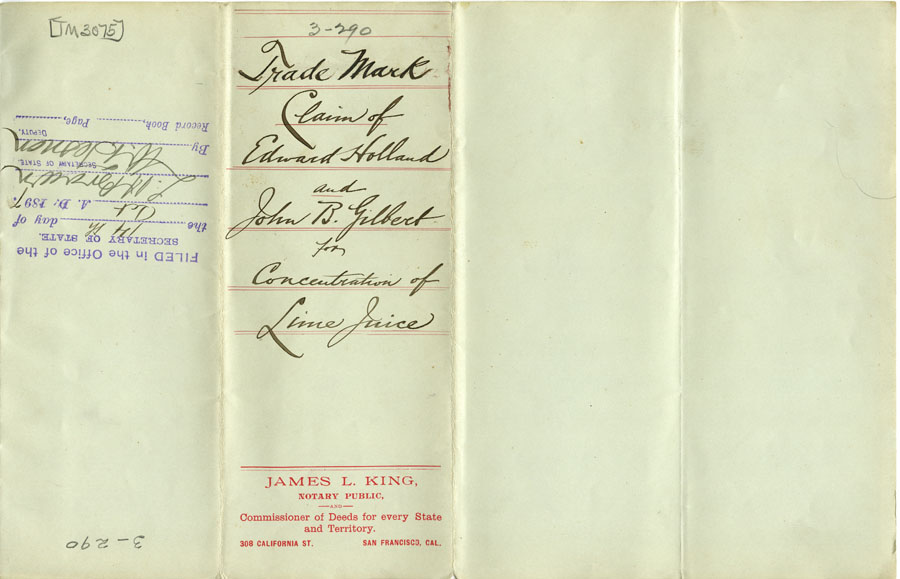 [TM3075]
FILED in the Office of the
SECRETARY OF STATE.
the 14th day of
Oct A. D. 1897.
L. H. Brown
SECRETARY OF STATE.
By
DEPUTY.
Record Book, Page,
3-290
3-290
Trade Mark
Claim of
Edward Holland
and
John B. Gilbert
for
Concentration of
Lime Juice
JAMES L. KING,
NOTARY PUBLIC,
AND
Commissioner of Deeds for every State
and Territory.
308 CALIFORNIA ST. SAN FRANCISCO, CAL.